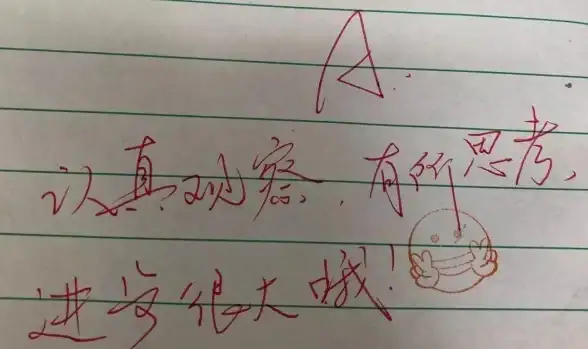 A.
认真观察,有所思考,
进步很大哦!